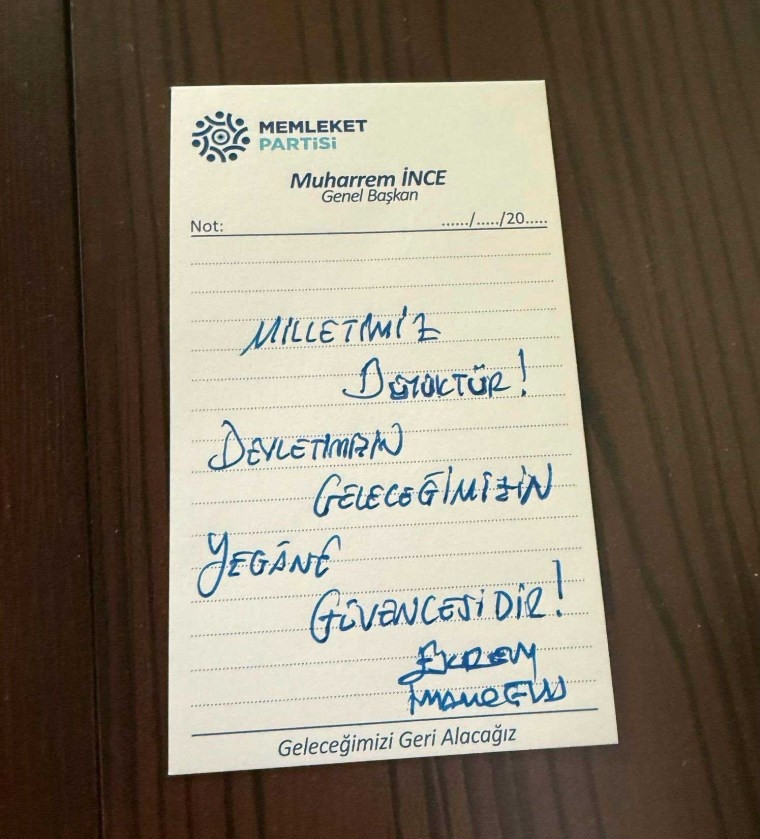 MEMLEKET
PARTİSİ
Muharrem İNCE
Genel Başkan
Not: ....../...../20.....
MİLLETİMİZ
BÜYÜKTÜR!
DEVLETİMİZİN
GELECEĞİMİZİN
YEGÂNE
GÜVENCESİDİR!
EKREM
İMAMOĞLU
Geleceğimizi Geri Alacağız